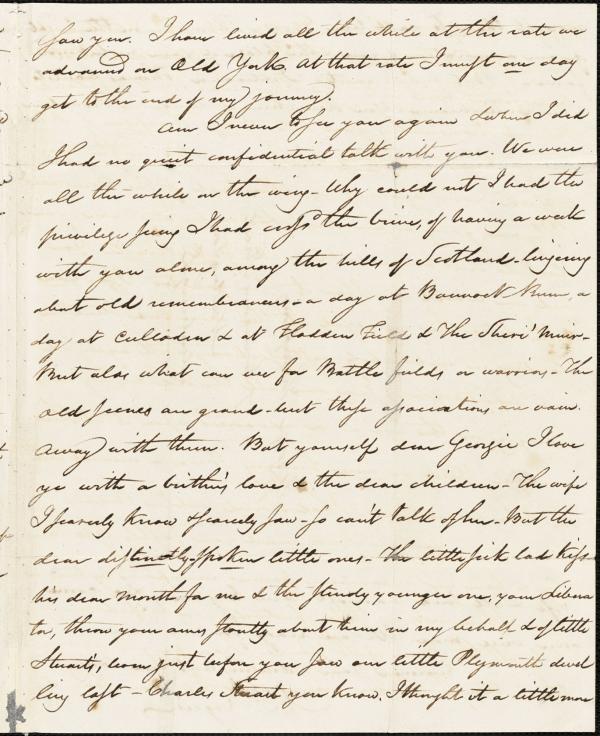 saw you. I have lived all the while at the rate we
advanced on Old York. At that rate I must one day
get to the end of my journey.
Am I never to see you again & when I did
I had no quiet confidential talk with you. We were
all the while on the wing - Why could not I had the
privilege seeing I had cross'd the brine, of having a week
with you alone, among the hills of Scotland - lingering
about old remembrances - a day at Bannock Burn, a
day at Culloden & at Flodden Field & The Sheri' Muir -
But alas what care we for Battle fields or warriors - The
old scenes are grand - but these associations are vain.
Away with them. But yourself dear Georgie I love
ye with a brither's love & the dear children - The wife
I scarcely know & scarcely saw - so can't talk of her - But the
dear distinctly-spoken little ones - The little sick lad kiss
his dear mouth for me & the sturdy younger one, your
to, throw your arms stoutly about him in my behalf & of little
Stuart's, born just before you saw our little Plymouth dwel
ling left - Charles Stuart you know. I thought it a little more